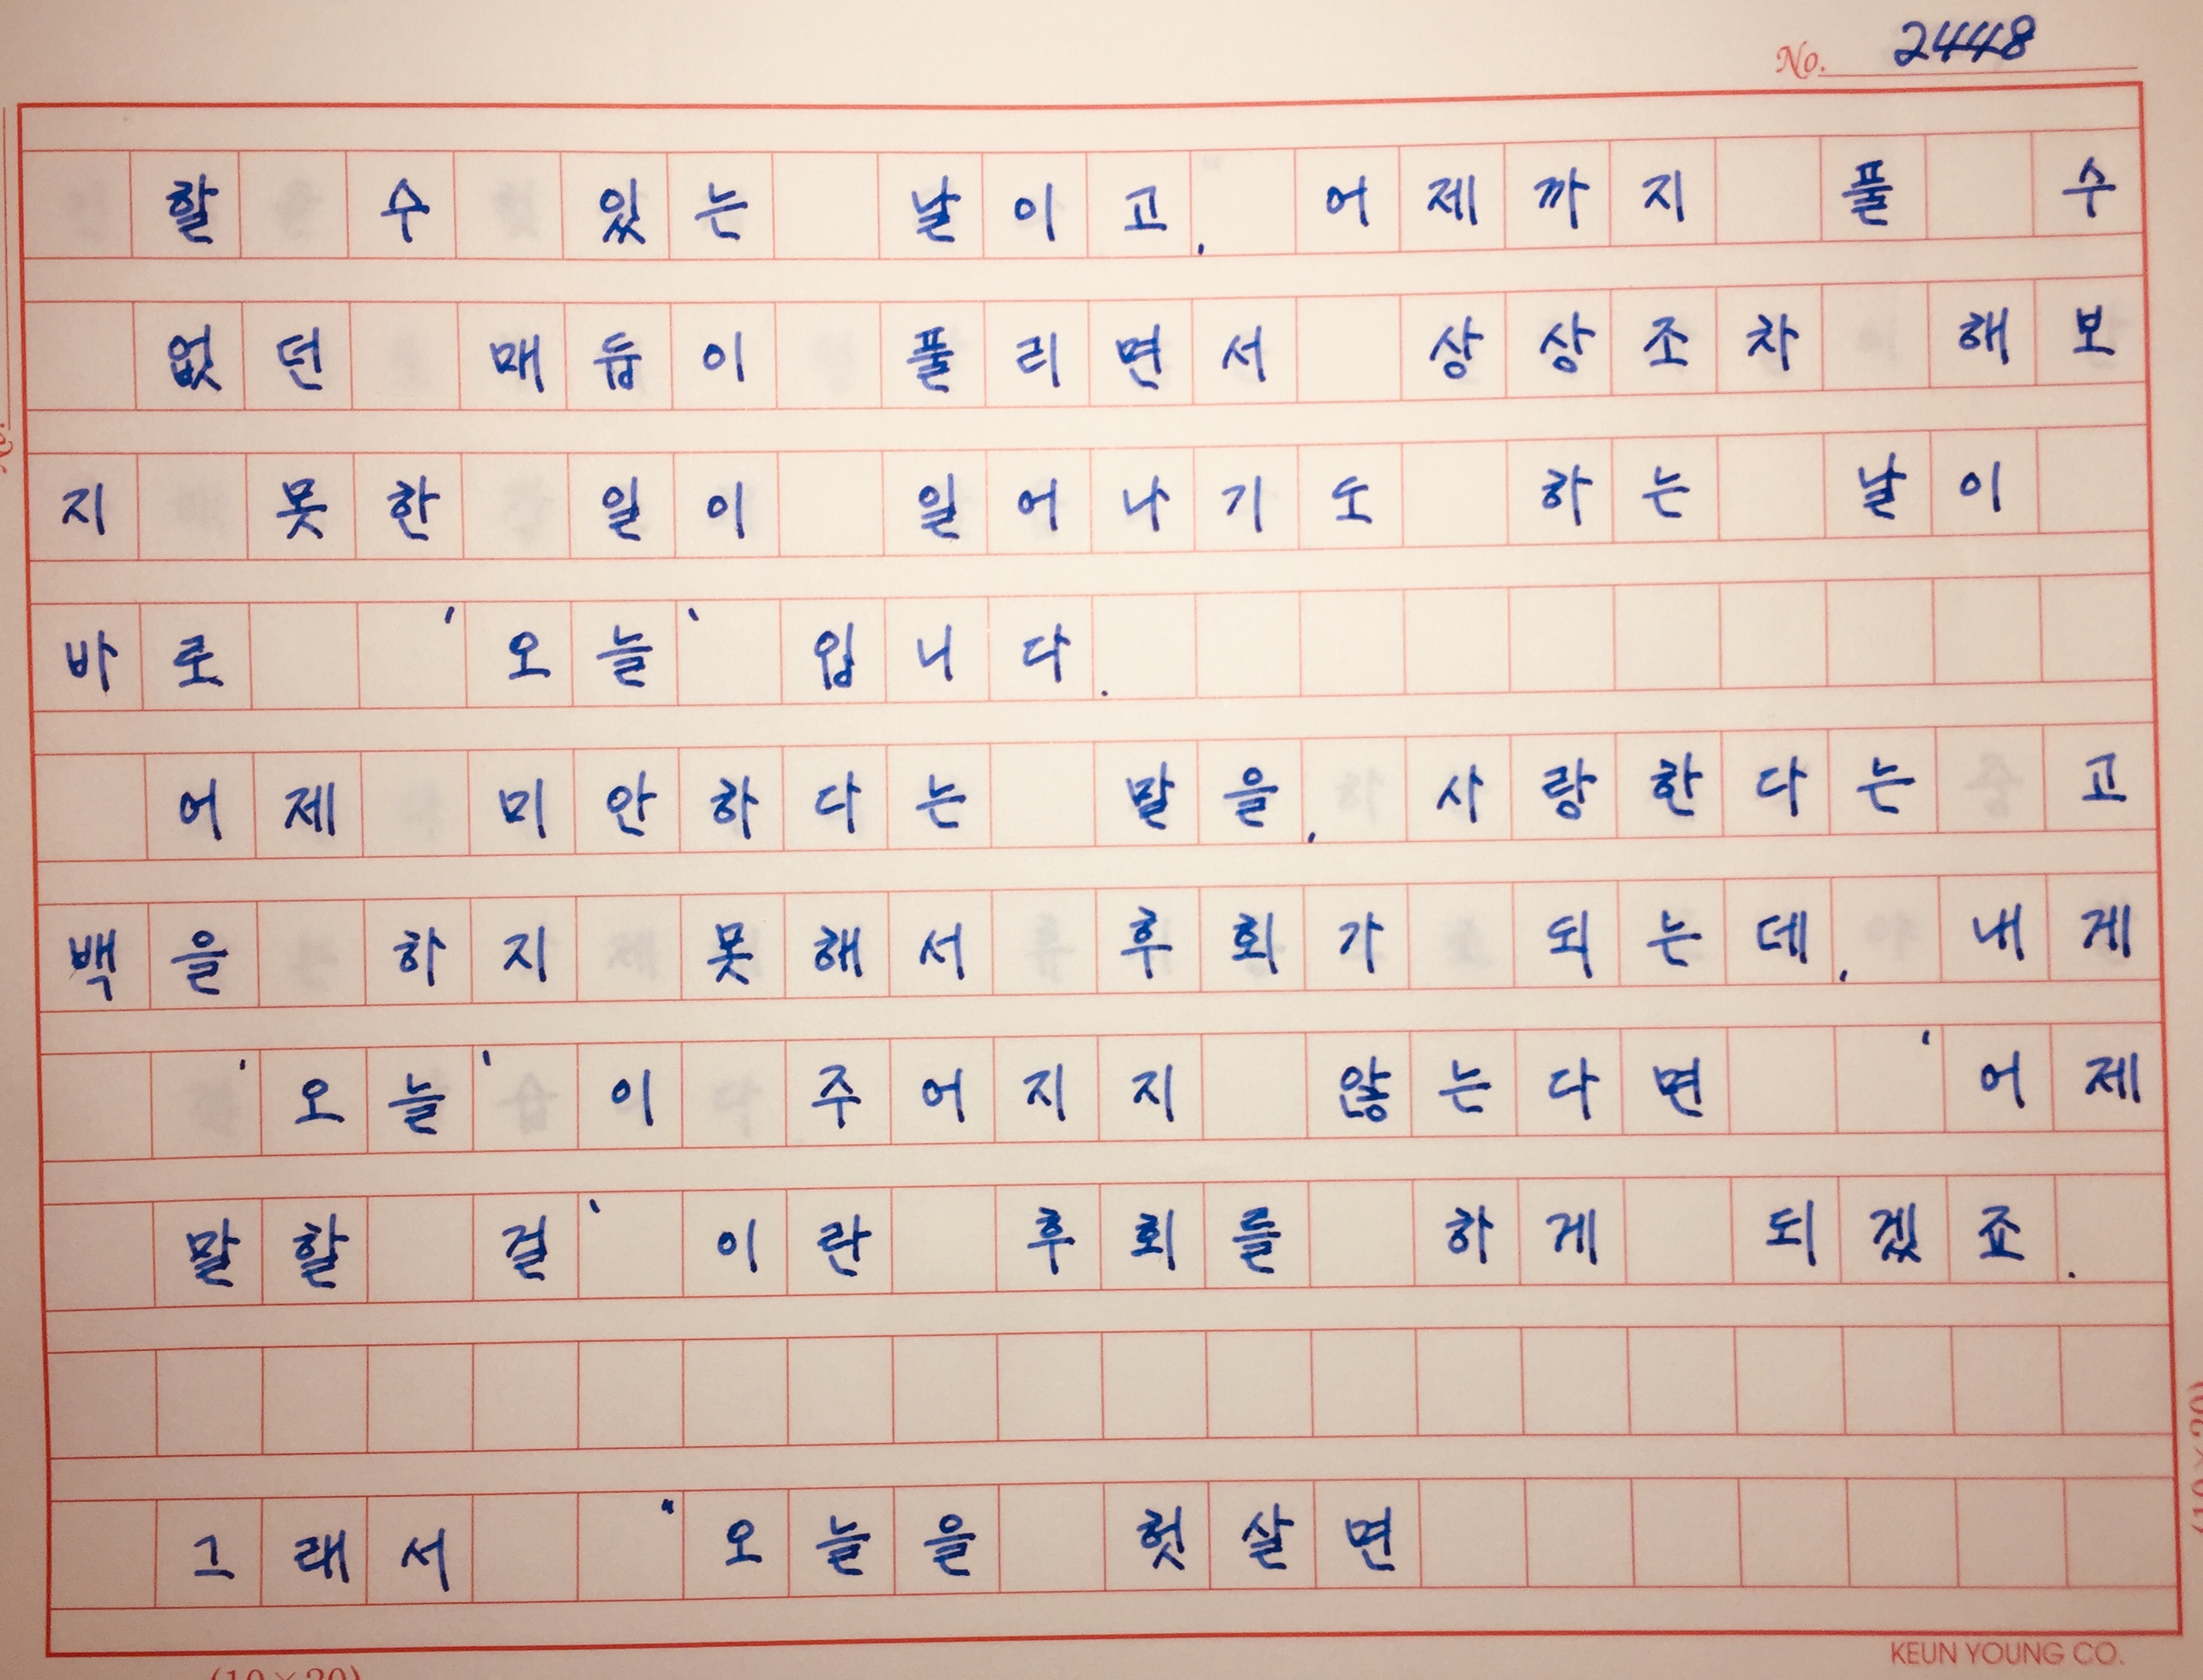 No. 2448
할 수 있는 날이고, 어제까지 풀 수
없던 매듭이 풀리면서 상상조차 해보
지 못한 일이 일어나기도 하는 날이
바로 '오늘' 입니다.
어제 미안하다는 말을, 사랑한다는 고
백을 하지 못해서 후회가 되는데, 내게
'오늘'이 주어지지 않는다면 '어제
말할 걸' 이란 후회를 하게 되겠죠.
그래서 "오늘을 헛살면
KEUN YOUNG CO.
(10×20)